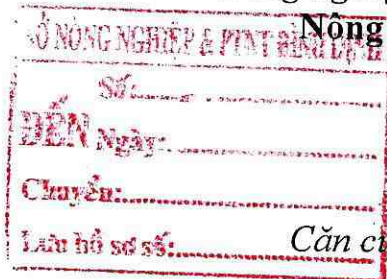 Nông
SỞ NÔNG NGHIỆP & PTNT BÌNH ĐỊNH
Số:
ĐẾN Ngày:
Chuyển:
Lưu hồ sơ số:
Căn cứ